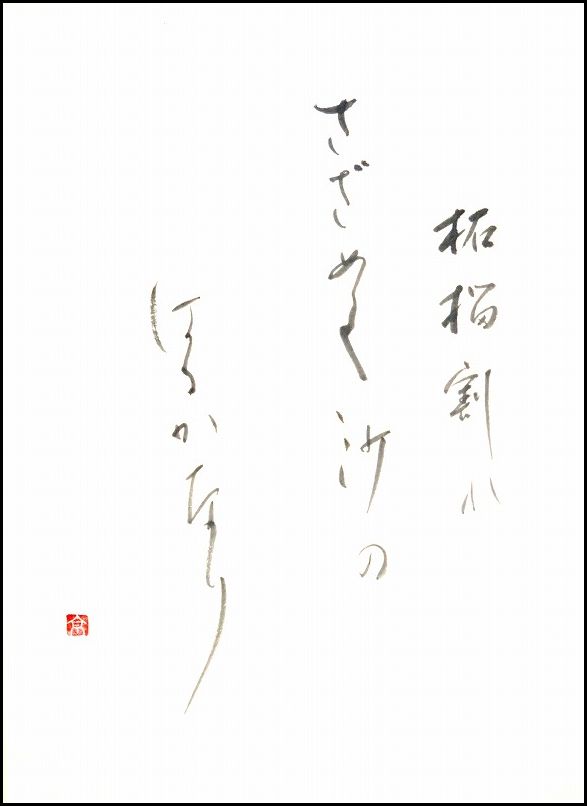 柘榴割
さざめく沙の
はるかなり